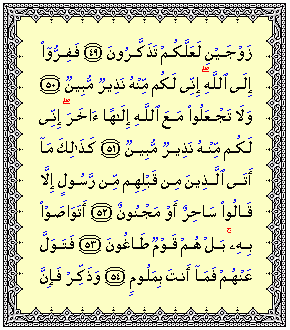 زَوْجَيْنِ لَعَلَّكُمْ تَذَكَّرُونَ ٤٩ فَفِرُّوٓا۟
إِلَى ٱللَّهِ ۖ إِنِّى لَكُم مِّنْهُ نَذِيرٌ مُّبِينٌ ٥٠
وَلَا تَجْعَلُوا۟ مَعَ ٱللَّهِ إِلَـٰهًا ءَاخَرَ ۖ إِنِّى
لَكُم مِّنْهُ نَذِيرٌ مُّبِينٌ ٥١ كَذَٰلِكَ مَآ
أَتَى ٱلَّذِينَ مِن قَبْلِهِم مِّن رَّسُولٍ إِلَّا
قَالُوا۟ سَاحِرٌ أَوْ مَجْنُونٌ ٥٢ أَتَوَاصَوْا۟
بِهِۦ ۚ بَلْ هُمْ قَوْمٌ طَاغُونَ ٥٣ فَتَوَلَّ
عَنْهُمْ فَمَآ أَنتَ بِمَلُومٍ ٥٤ وَذَكِّرْ فَإِنَّ